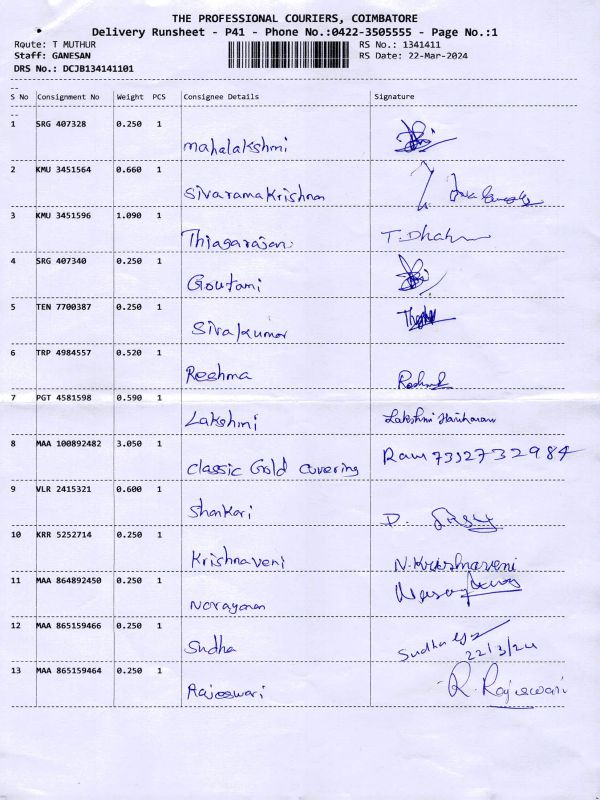 THE PROFESSIONAL COURIERS, COIMBATORE
Delivery Runsheet - P41 - Phone No.:0422-3505555 - Page No.:1
Route: T MUTHUR RS No.: 1341411
Staff: GANESAN RS Date: 22-Mar-2024
DRS No.: DCJB134141101
S No Consignment No Weight PCS Consignee Details Signature
1 SRG 407328 0.250 1
Mahalakshmi
2 KMU 3451564 0.660 1
Sivaramakrishnan
3 KMU 3451596 1.090 1
Thiagarajan T. Dhah
4 SRG 407340 0.250 1
Goutami
5 TEN 7700387 0.250 1
Sivakumar
6 TRP 4984557 0.520 1
Reshma Reshma
7 PGT 4581598 0.590 1
Lakshmi Lakshmi Hariharan
8 MAA 100892482 3.050 1
Classic Gold covering Ram 7332732984
9 VLR 2415321 0.600 1
Shankari D.
10 KRR 5252714 0.250 1
Krishnaveni N. Krishnaveni
11 MAA 864892450 0.250 1
Narayanan
12 MAA 865159466 0.250 1
Sudha Sudha
22/3/24
13 MAA 865159464 0.250 1
Rajeswari R. Rajeswari